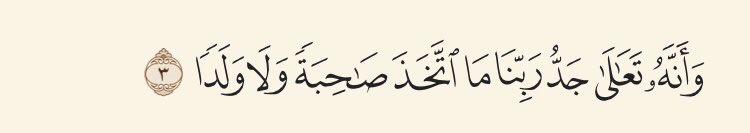 وَأَنَّهُۥ تَعَٰلَىٰ جَدُّ رَبِّنَا مَا ٱتَّخَذَ صَٰحِبَةً وَلَا وَلَدًا ٣